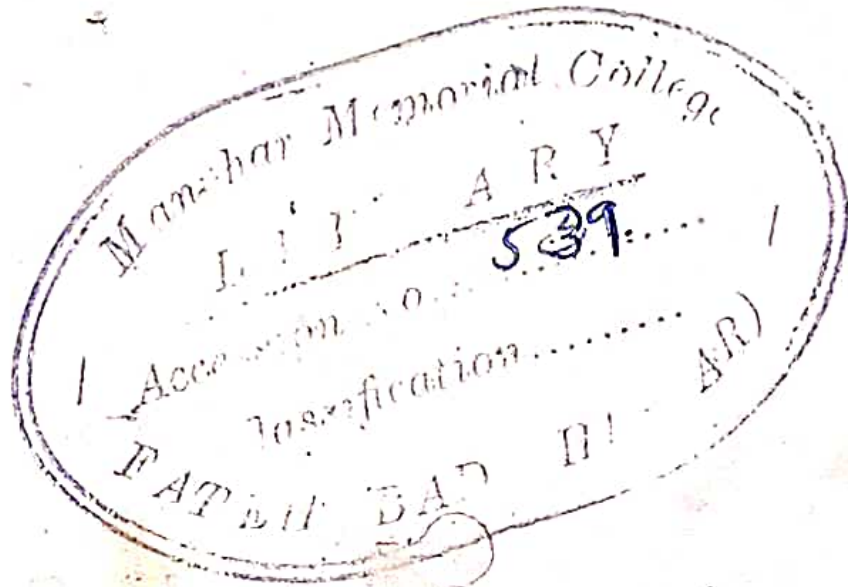 Manohar Memorial College
LIBRARY
Accession No. 539
Classification..........
FATEHABAD (HISAR)